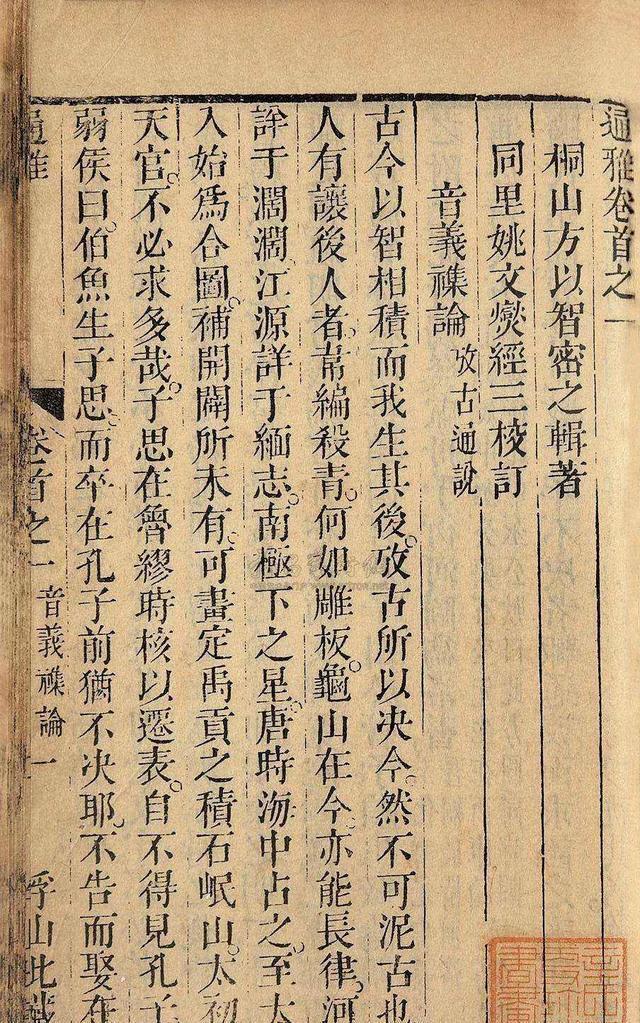 通雅卷首之一
桐山方以智密之輯著
同里姚文燮經三挍訂
音義襍論 攷古通說
古今以智相積而我生其後攷古所以决今然不可泥古也
人有讓後人者韋編殺青何如雕板龜山在今亦能長律河
詳于濶濶江源詳于緬志南極下之星唐時海中占之至太
入始爲合圖補開闢所未有可畫定禹貢之積石岷山太初
天官不必求多哉子思在魯繆時核以遷表自不得見孔子
弱侯曰伯魚生子思而卒在孔子前猶不决耶不告而娶在
通雅 卷首之一 音義襍論 一 浮山此藏